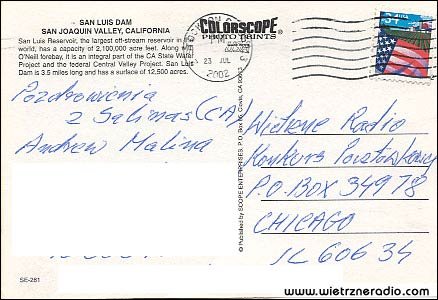 SAN LUIS DAM
SAN JOAQUIN VALLEY, CALIFORNIA
San Luis Reservoir, the largest off-stream reservoir in
world, has a capacity of 2,100,000 acre feet. Along w
O'Neill forebay, it is an integral part of the CA State Wate
Project and the federal Central Valley Project. San Luis
Dam is 3.5 miles long and has a surface of 12,500 acres.
COLORSCOPE®
PHOTO PRINTS
PM
23 JUL
2002
37
USA
Pozdrowienia
z Salinas (CA)
Andrew Malina
© Published by SCOPE ENTERPRISES, P.O. Box
Wietrzne Radio
Konkurs Pocztówkowy
P.O. BOX 34978
CHICAGO
IL 60634
SE-281
www.wietrzneradio.com